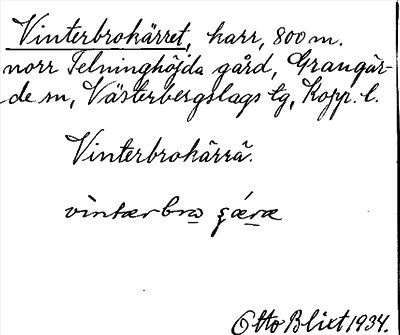 Vinterbrokärret, karr, 800 m.
norr Telninghöjda gård, Grangär-
de sn, Västerbergslags tg, Kopp. l.
Vinterbrokärrä.
vìntærbro̲ ʂǽræ
Otto Blixt 1934.